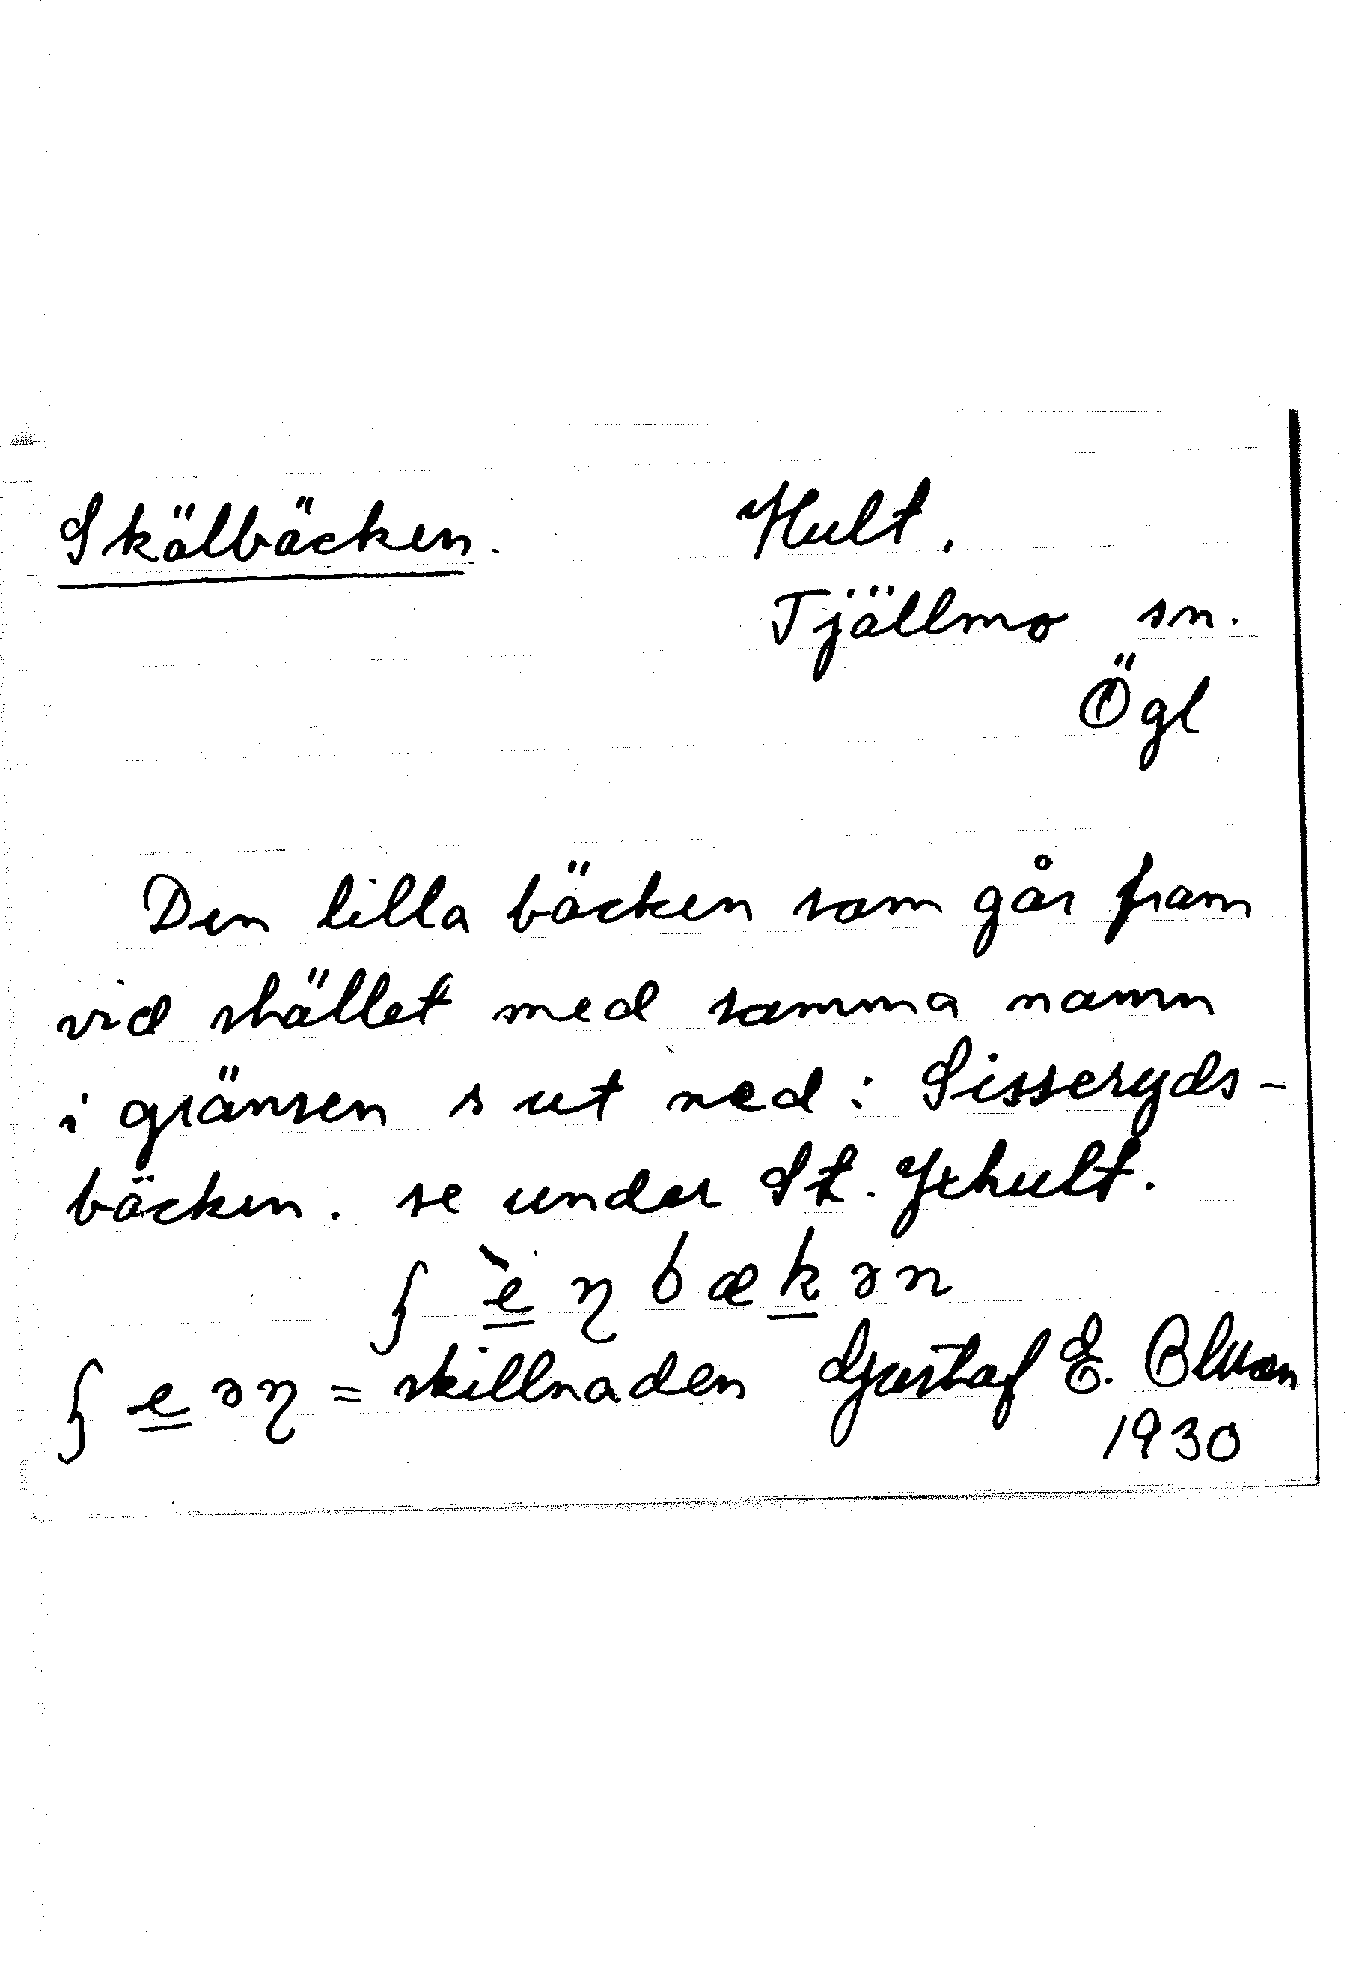 Skälbäcken. Hult.
Tjällmo sn.
Ögl
Den lilla bäcken som går fram
vid skället med samma namn
i gränsen s ut ned i Sisseryds-
bäcken. se under St.
ʃ è ŋ b æ k ə n
ʃ e ə ŋ = skillnaden Gustaf E.
1930